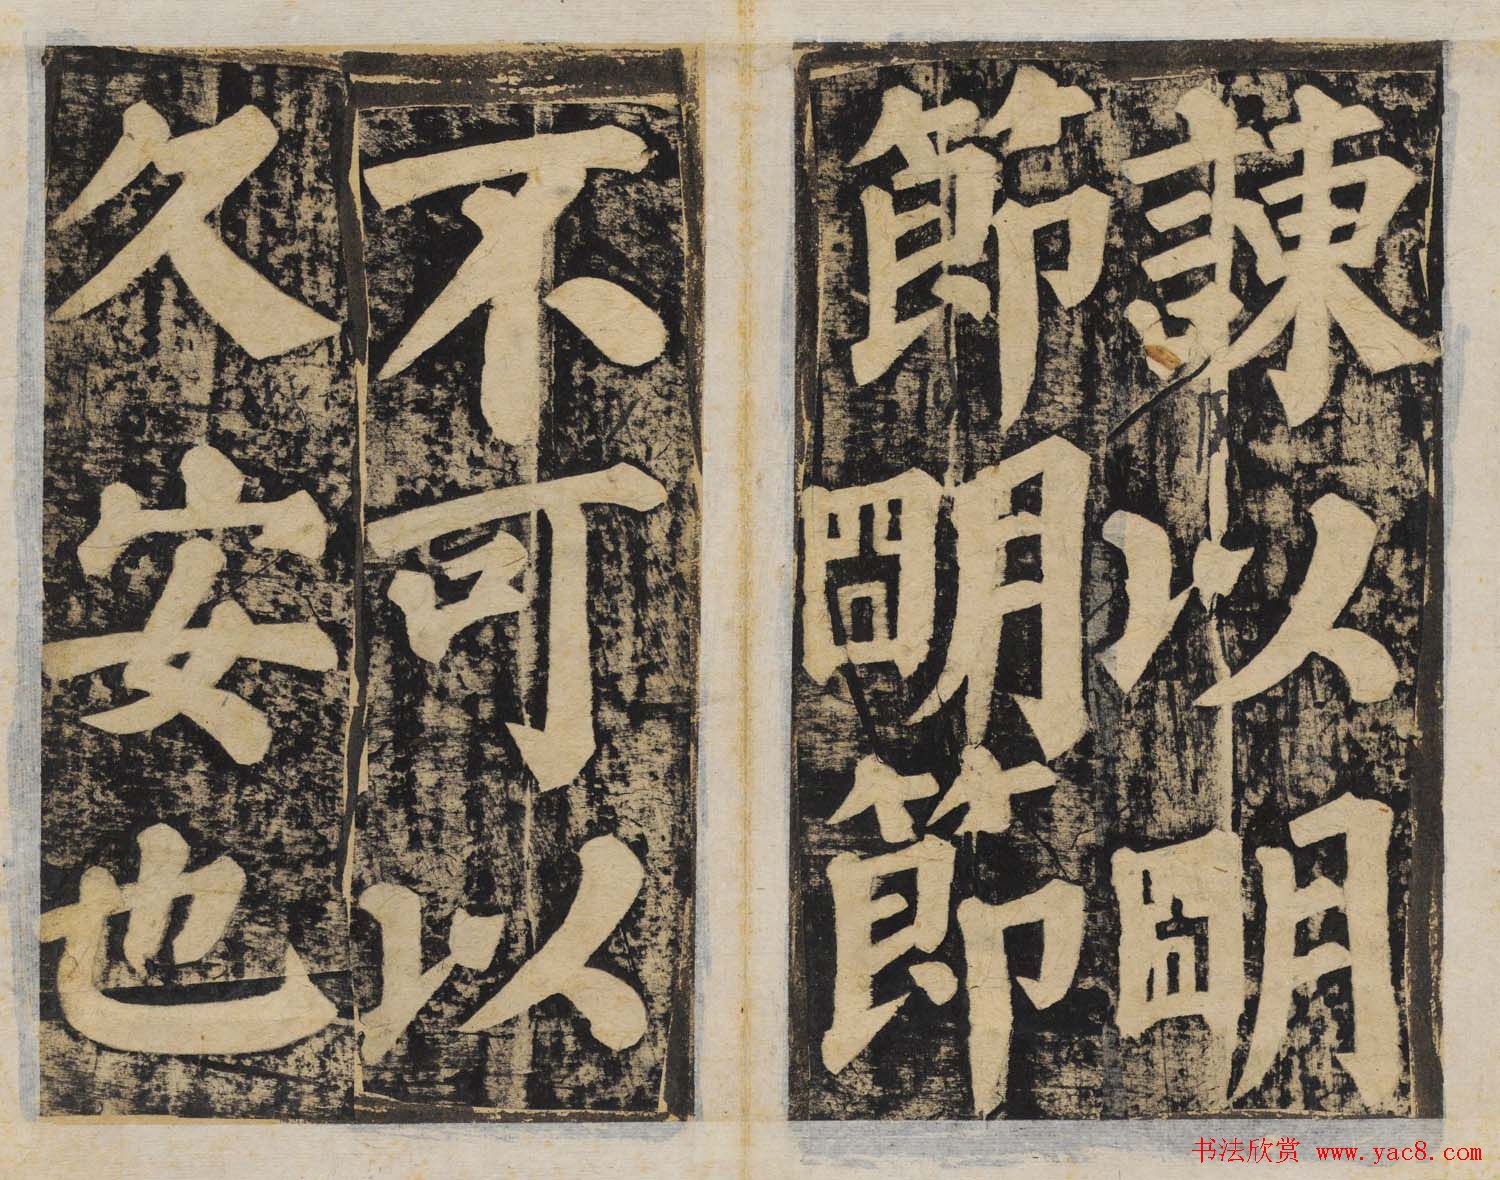 諫以明
節明節
不可以
久安也
书法欣赏 www.yac8.com